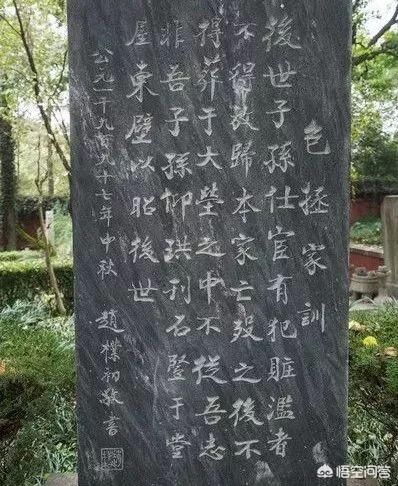 包拯家訓
後世子孫仕宦有犯贓濫者
不得放歸本家亡歿之後不
得葬于大塋之中不從吾志
非吾子孫仰珙刊石豎于堂
屋東壁以昭後世
公元一千九百九十七年中秋 趙樸初敬書
悟空问答